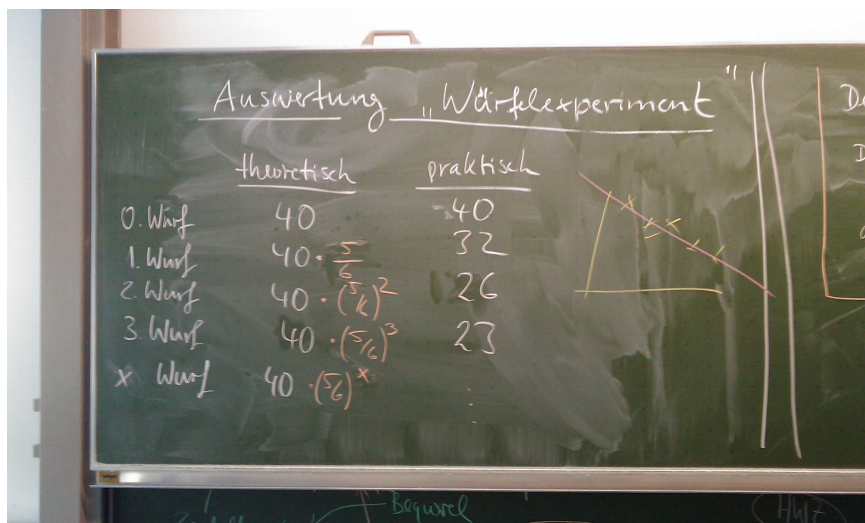 Auswertung „Würfelexperiment"
theoretisch praktisch
0. Wurf 40 40
1. Wurf 40 · 5/6 32
2. Wurf 40 · (5/6)² 26
3. Wurf 40 · (5/6)³ 23
x Wurf 40 · (5/6)ˣ
Bequerel
HW7